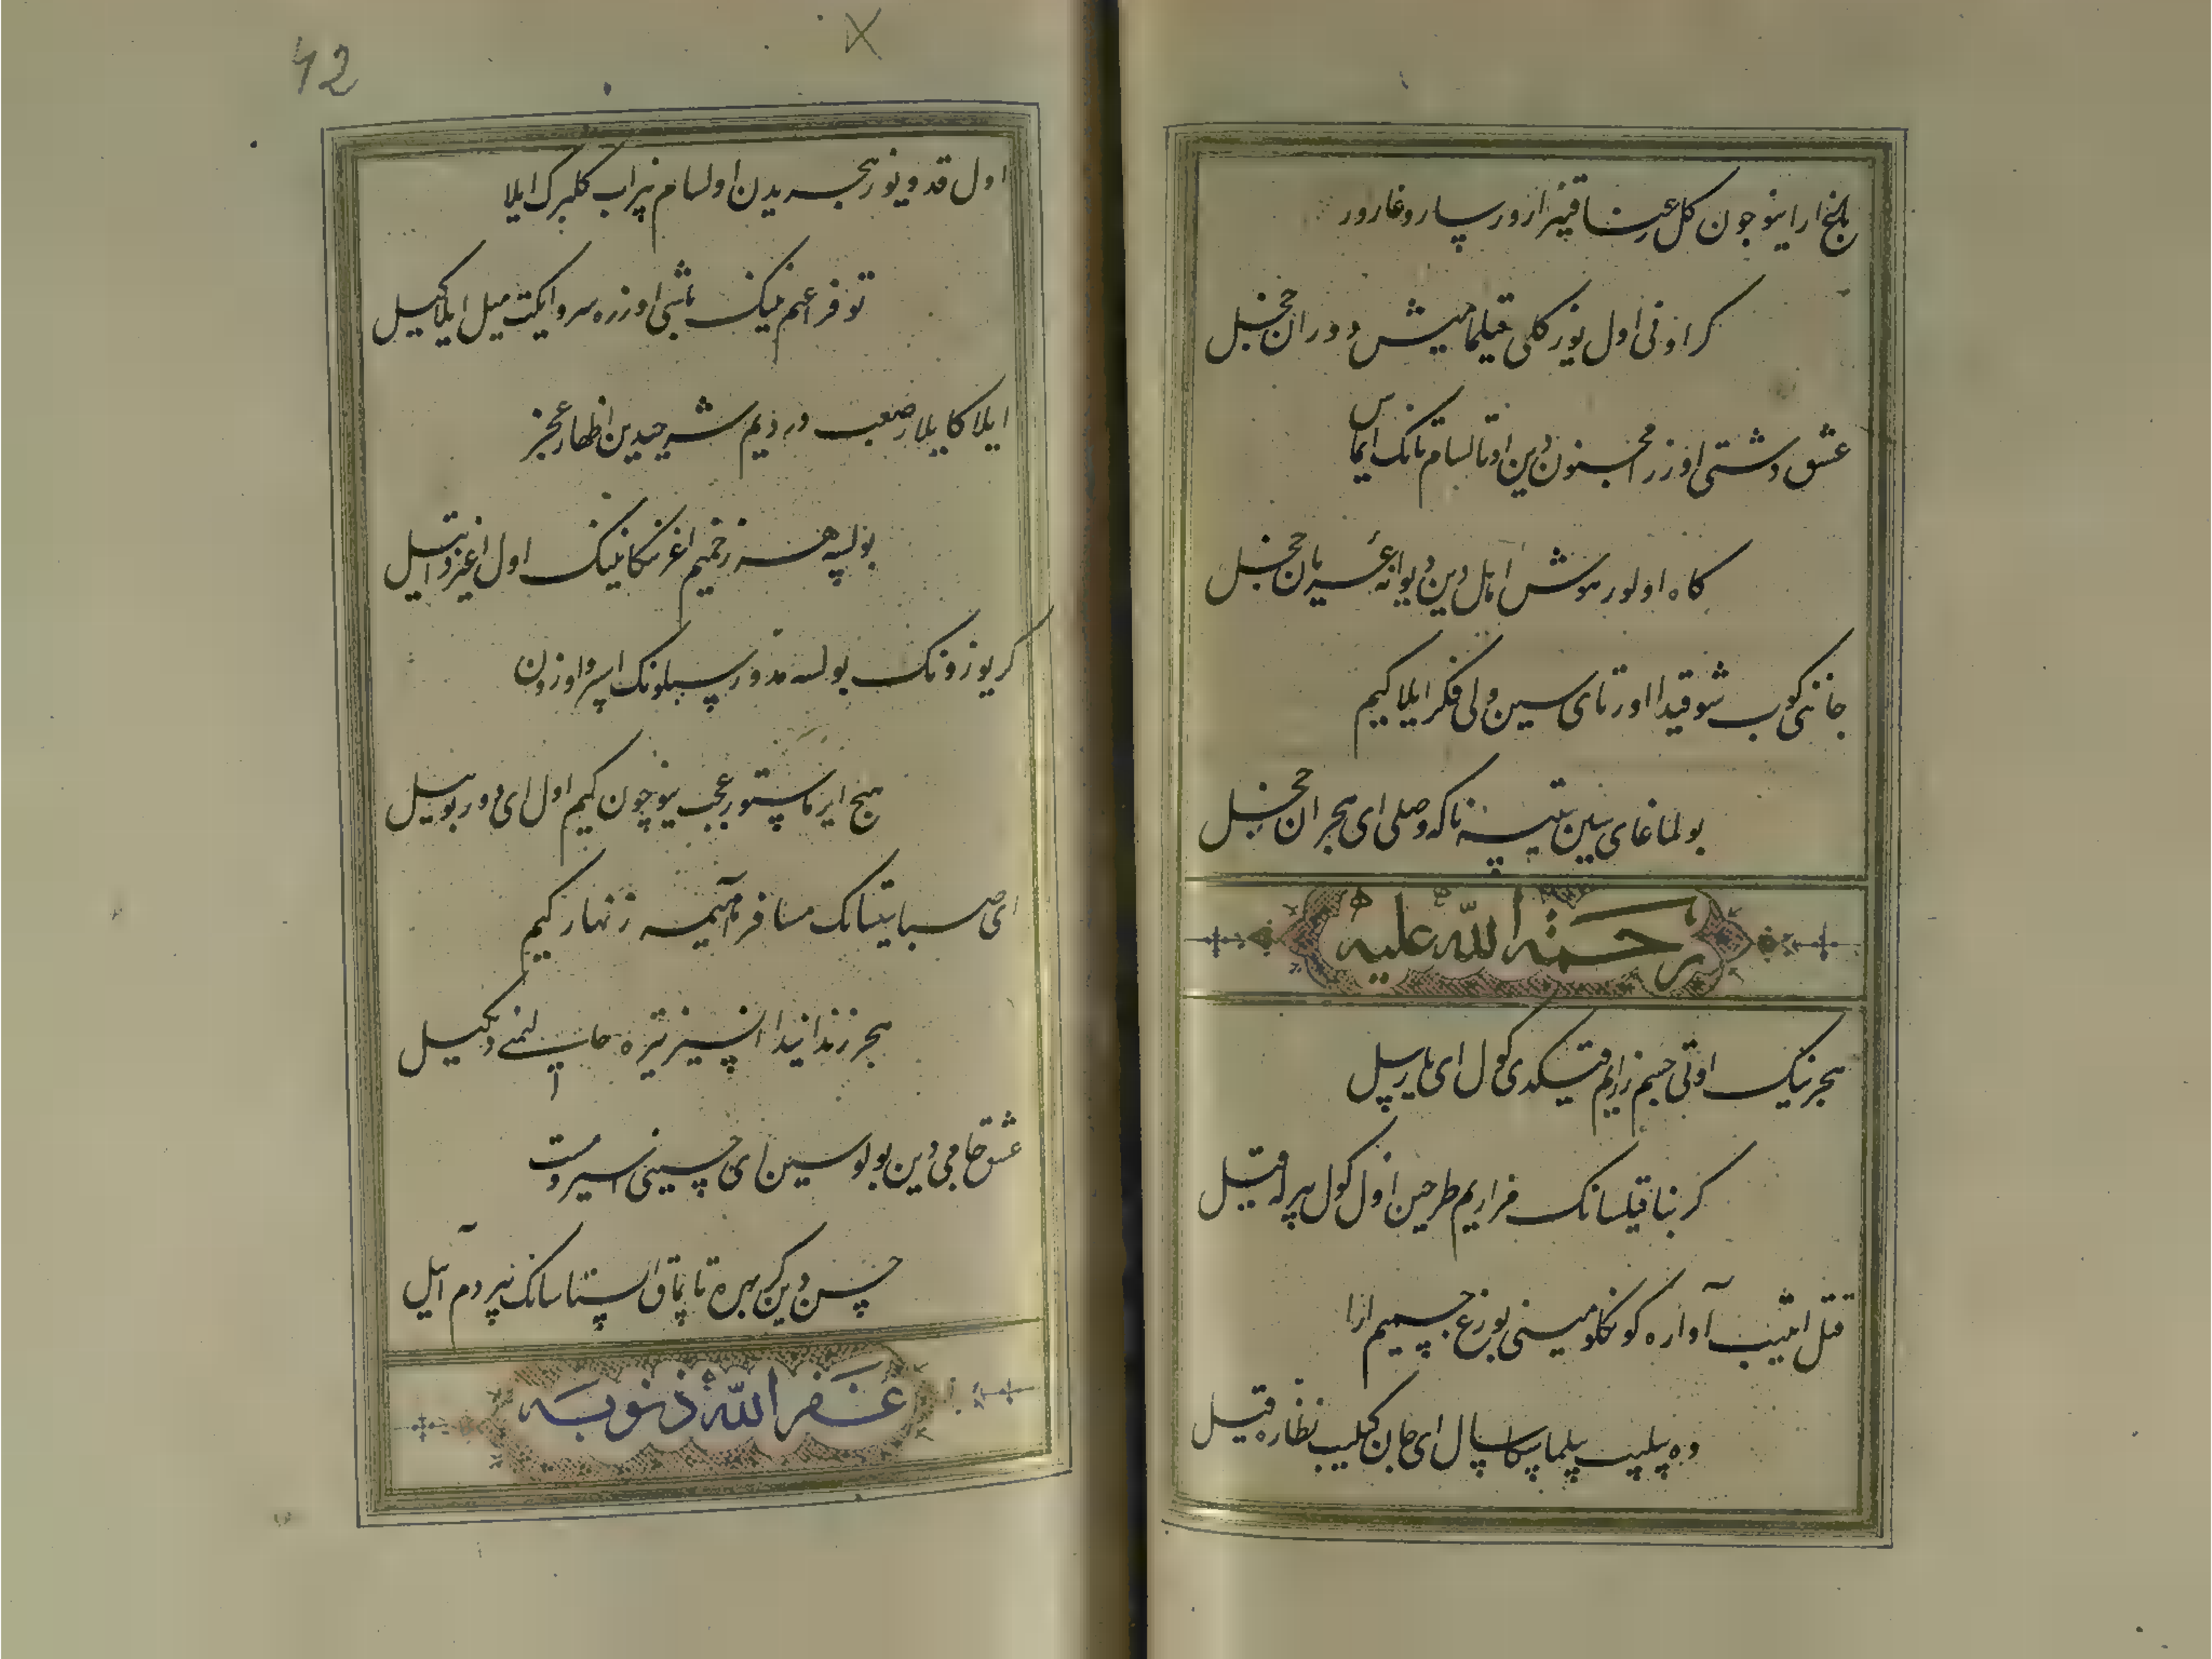 باغ ارا نیچون کل رعنا قیزارور سارغارور
کر اونی اول یوز کلی قیلمامیش دوران خجل
عشق دشتی اوزره مجنون دین اوتالسام تانک ایماس
کاه اولور هوش اهلی دین دیوانه عریان خجل
جاننی کویب شوقیدا اورتای سین ولی فکر ایلا کیم
بولماغای سین یتیسه ناکه وصلی ای هجران خجل
رحمة الله علیه
هجرنینک اوتی جسم زاریم قیلدی کول ای یار بیل
کر بنا قیلسانک مزاریم طرحین اول کول بیرله قیل
قتل ایتیب آواره کونکلومنی بوزغ جسمیم ارا
وه بیلیب بیلماسکا سال ای جان کیلیب نظاره قیل
اول قد و یوز هجریدن اولسام نیراب کلبرک ایلا
توفراغیم نینک باشی اوزره سرو ایکت میل ایلاکیل
ایلاکایلار ضعب دردیم شرحیدین اظهار عجز
بولسه هر زخمیم اغز نیکانینک اول اغزدا تیل
کر یوزونک بولسه مدور سبلونک اسرو اوزون
هیچ ایرماستور عجب نیچون کیم اول ای دور بو ییل
ای صبا یتسانک مسافر ماهیمه زنهار کیم
هجر زندانیدا انسیز تیره حالیمنی دیکیل
عشق جامی دین بولوسین ای حسینی اسرو مست
حسن دین کر بهره تابماق ایستاسانک بیر دم آییل
غفر الله ذنوبه
42